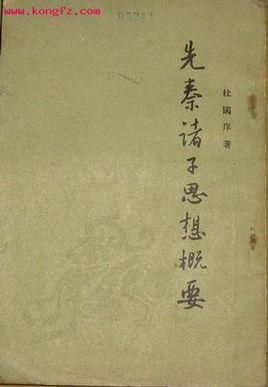 www.kongfz.com
05241
先秦诸子思想概要
杜國庠著